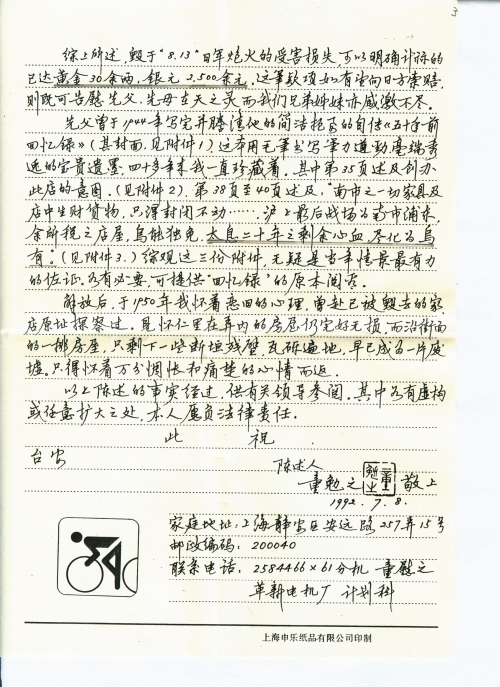 3
综上所述,毁于"8.13"日军炮火的受害损失,可以明确计标的
已达黄金30余两,银元2,500余元,这笔款项如有望向日方索赔,
则既可告慰先父、先母在天之灵而我们兄弟姊妹亦感激不尽。
先父曾于1944年写完并腾清他的简洁扼要的自传《五十年前
回忆录》(其封面,见附件1)这本用元书书写笔力遒劲毫端秀
逸的宝贵遗墨,四十多年来我一直珍藏着。其中第35页述及创办
此店的意图。(见附件2),第38页至40页述及,"南市之一切家具及
店中生财货物,只得封闭不动……沪上最后战场为南市浦东,
余所税之店屋,乌能独免,太息二十年之剩余心血,尽化为乌
有。"(见附件3.)综观这三份附件,无疑是当年情景最有力
的佐证,若有必要,可提供"回忆录"的原本阅否。
解放后,于1950年我怀着恋旧的心理,曾赴已被毁去的家
店原址探察过。見怀仁里在弄内的房屋仍完好无损,而沿街面
的一排房屋,只剩下一些断垣残壁,瓦砾遍地,早已成为一片废
墟。只得怀着万分惆怅和痛楚的心情而返。
以上陈述的事实经过,供有关领导参阅。其中若有虚构
或任意扩大之处,本人愿负法律责任。
此 祝
台安
陈述人
童勉之 敬上
童勉之
1992.7.8.
家庭地址:上海静安区安远路257弄15号
邮政编码:200040
联系电话:2584466×61分机 童慰之
革新电机厂 计划科
上海申乐纸品有限公司印制